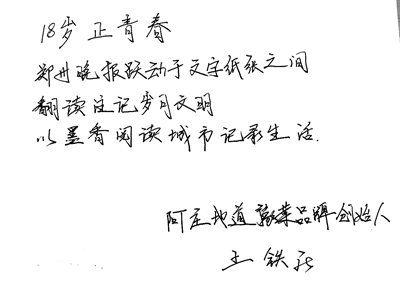 18岁 正青春
郑州晚报跃动于文字纸张之间
翻读注记岁月文明
以墨香阅读城市记录生活.
阿庄地道豫菜品牌创始人
王铁